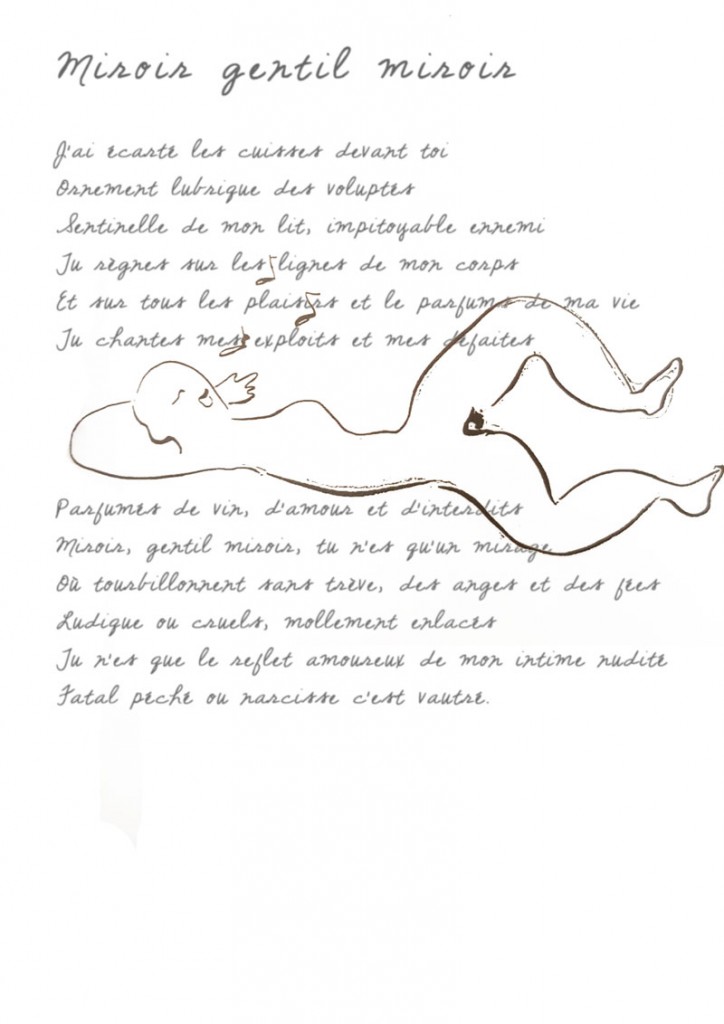 Miroir gentil miroir
J'ai écarté les cuisses devant toi
Ornement lubrique des voluptés
Sentinelle de mon lit, impitoyable ennemi
Tu règnes sur les lignes de mon corps
Et sur tous les plaisirs et le parfums de ma vie
Tu chantes mes exploits et mes défaites
Parfumés de vin, d'amour et d'interdits
Miroir, gentil miroir, tu n'es qu'un mirage
Où tourbillonnent sans trève, des anges et des fées
Ludique ou cruels, mollement enlacés
Tu n'es que le reflet amoureux de mon intime nudité
Fatal péché ou narcisse c'est vautré.